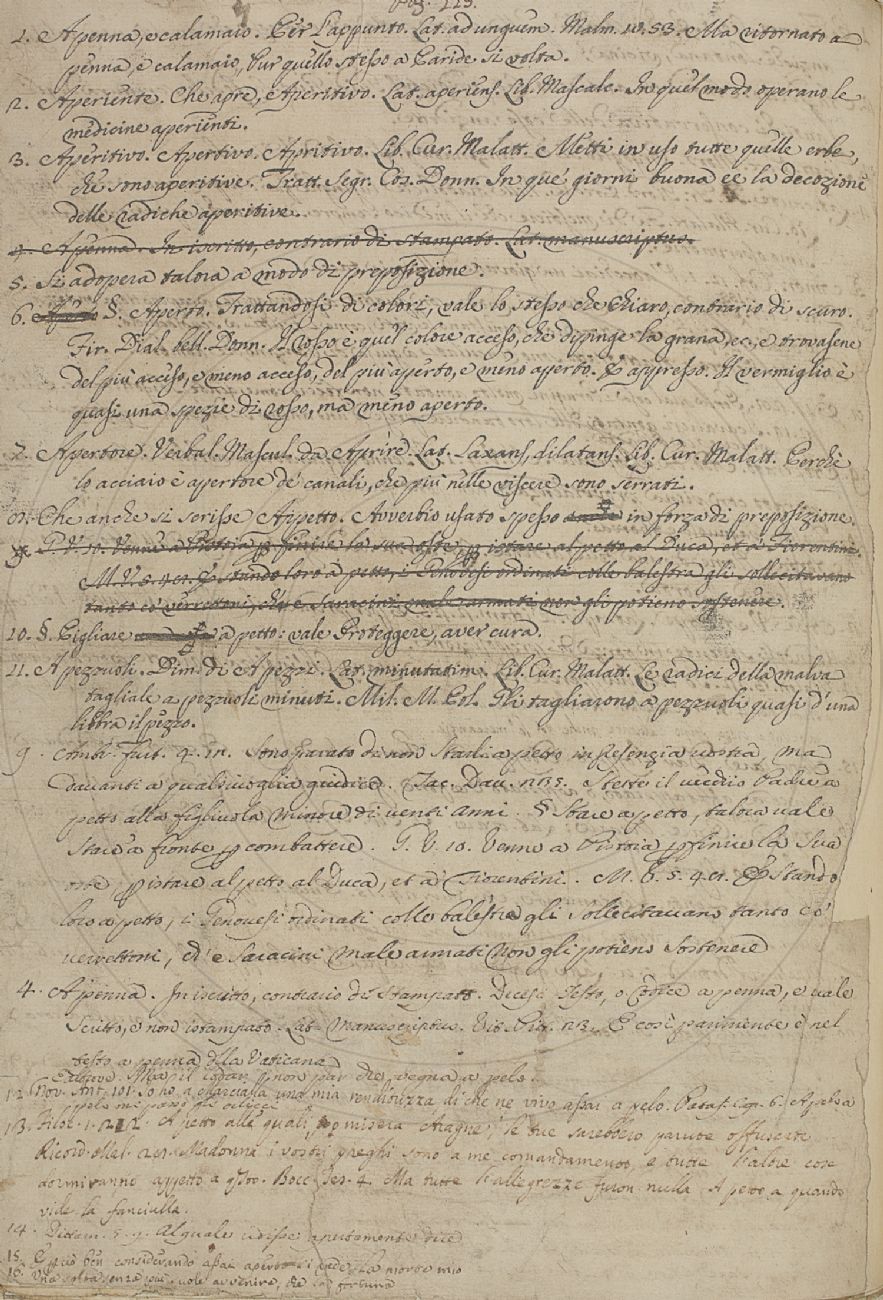 Pag. 223.
1. A penna, e calamaio. Per L'appunto. Lat. ad unguem. Malm. 10. 53. Ma ritornato a
penna, e calamaio, Pur quello stesso a Paride si volta.
2. Aperiente. Che apre, Aperitivo. Lat. aperiens. Lib. Mascalc. In quel modo operano le
medicine aperienti.
3. Aperitivo. Apertivo. Apritivo. Lib. Cur. Malatt. Metti in uso tutte quelle erbe,
che sono aperitive. Tratt. Segr. Cos. Donn. In que' giorni buona ee la decozione
delle radiche aperitive.
4. A penna. In iscritto, contrario di stampato. Lat. manuscriptus.
5. Si adopera talora a modo di preposizione.
6. §. Aperto. Trattandosi di colori, vale lo stesso che Chiaro, contrario di scuro.
Fir. Dial. bell. Donn. Il rosso è quel colore acceso, che dipinge la grana, ec., e trovasene
del più acceso, e meno acceso, del più aperto, e meno aperto. E appresso. Il vermiglio è
quasi una spezie di rosso, ma meno aperto.
7. Apertore. Verbal. Mascul. da Aprire. Lat. Laxans, dilatans. Lib. Cur. Malatt. Perchè
lo acciaio è apertore de' canali, che più nelle viscere sono serrati.
8. Che anche si scrisse Appetto. Avverbio usato spesso in forza di preposizione.
9. G. V. 10. Venne a Pistoia p finire la sua oste, p istare al petto al Duca, et a' Fiorentini.
M. V. 5. 4. E stando loro a petto, i Genovesi ordinati colle balestra gli sollicitavano
tanto co' verrettoni, ch'e Saracini male armati non gli potieno sostenere.
10. §. Pigliare a petto: vale Proteggere, aver cura.
11. A pezzuoli. Dim. di A pezzi. Lat. minutatim. Lib. Cur. Malatt. Le radici della malva
tagliale a pezzuoli minuti. Mil. M. Pol. Gli tagliarono a pezzuoli quasi d'una
libbra il pezzo.
9. Sono parato di non starli a petto in presenzia vostra, ma
davanti a qualsivoglia giudice. Tac. Dav. Stette il vecchio Padre a
petto alla figliuola minore di venti anni. § Stare a petto, talora vale
Stare a fronte p combattere. G. V. 10. Venne a Pistoia p finire la sua
oste, p istare al petto al Duca, et a' Fiorentini. M. V. 5. 4. E stando
loro a petto, i Genovesi ordinati colle balestre gli sollecitavano tanto co'
verrettoni, ch' e Saracini male armati non gli potieno sostenere
4. A penna. In iscritto, contrario di Stampato. Dicesi Testo, o Codice a penna, e vale
Scritto, e non istampato. Lat. Manuscriptus. Vit. Pitt. E così parimente è nel
testo a penna della Vaticana
non par che vegna a pelo.
12. Nov. Ant. 101. Io ho a Marciana una mia rendituzza di che ne vivo assai a pelo. Pataff. Cap. 6. A pelo a
pelo
13. Filoc. A petto alla quali, o misera Aragne, le tue sarebbero parute offuscate
Madonna i vostri prieghi sono a me comandamento, e tutte l'altre cose
dormiranno appetto a qsto. Bocc. Tes. 4. Ma tutte l'allegrezze furon nulla A petto a quando
vide la fanciulla.
14. Dittam. 5. 9. Al quale udisse apertamente dire
15. E perciò ben considerando assai aperto si vede la morte mio
16. Una volta senza più, suole avvenire, che la fortuna